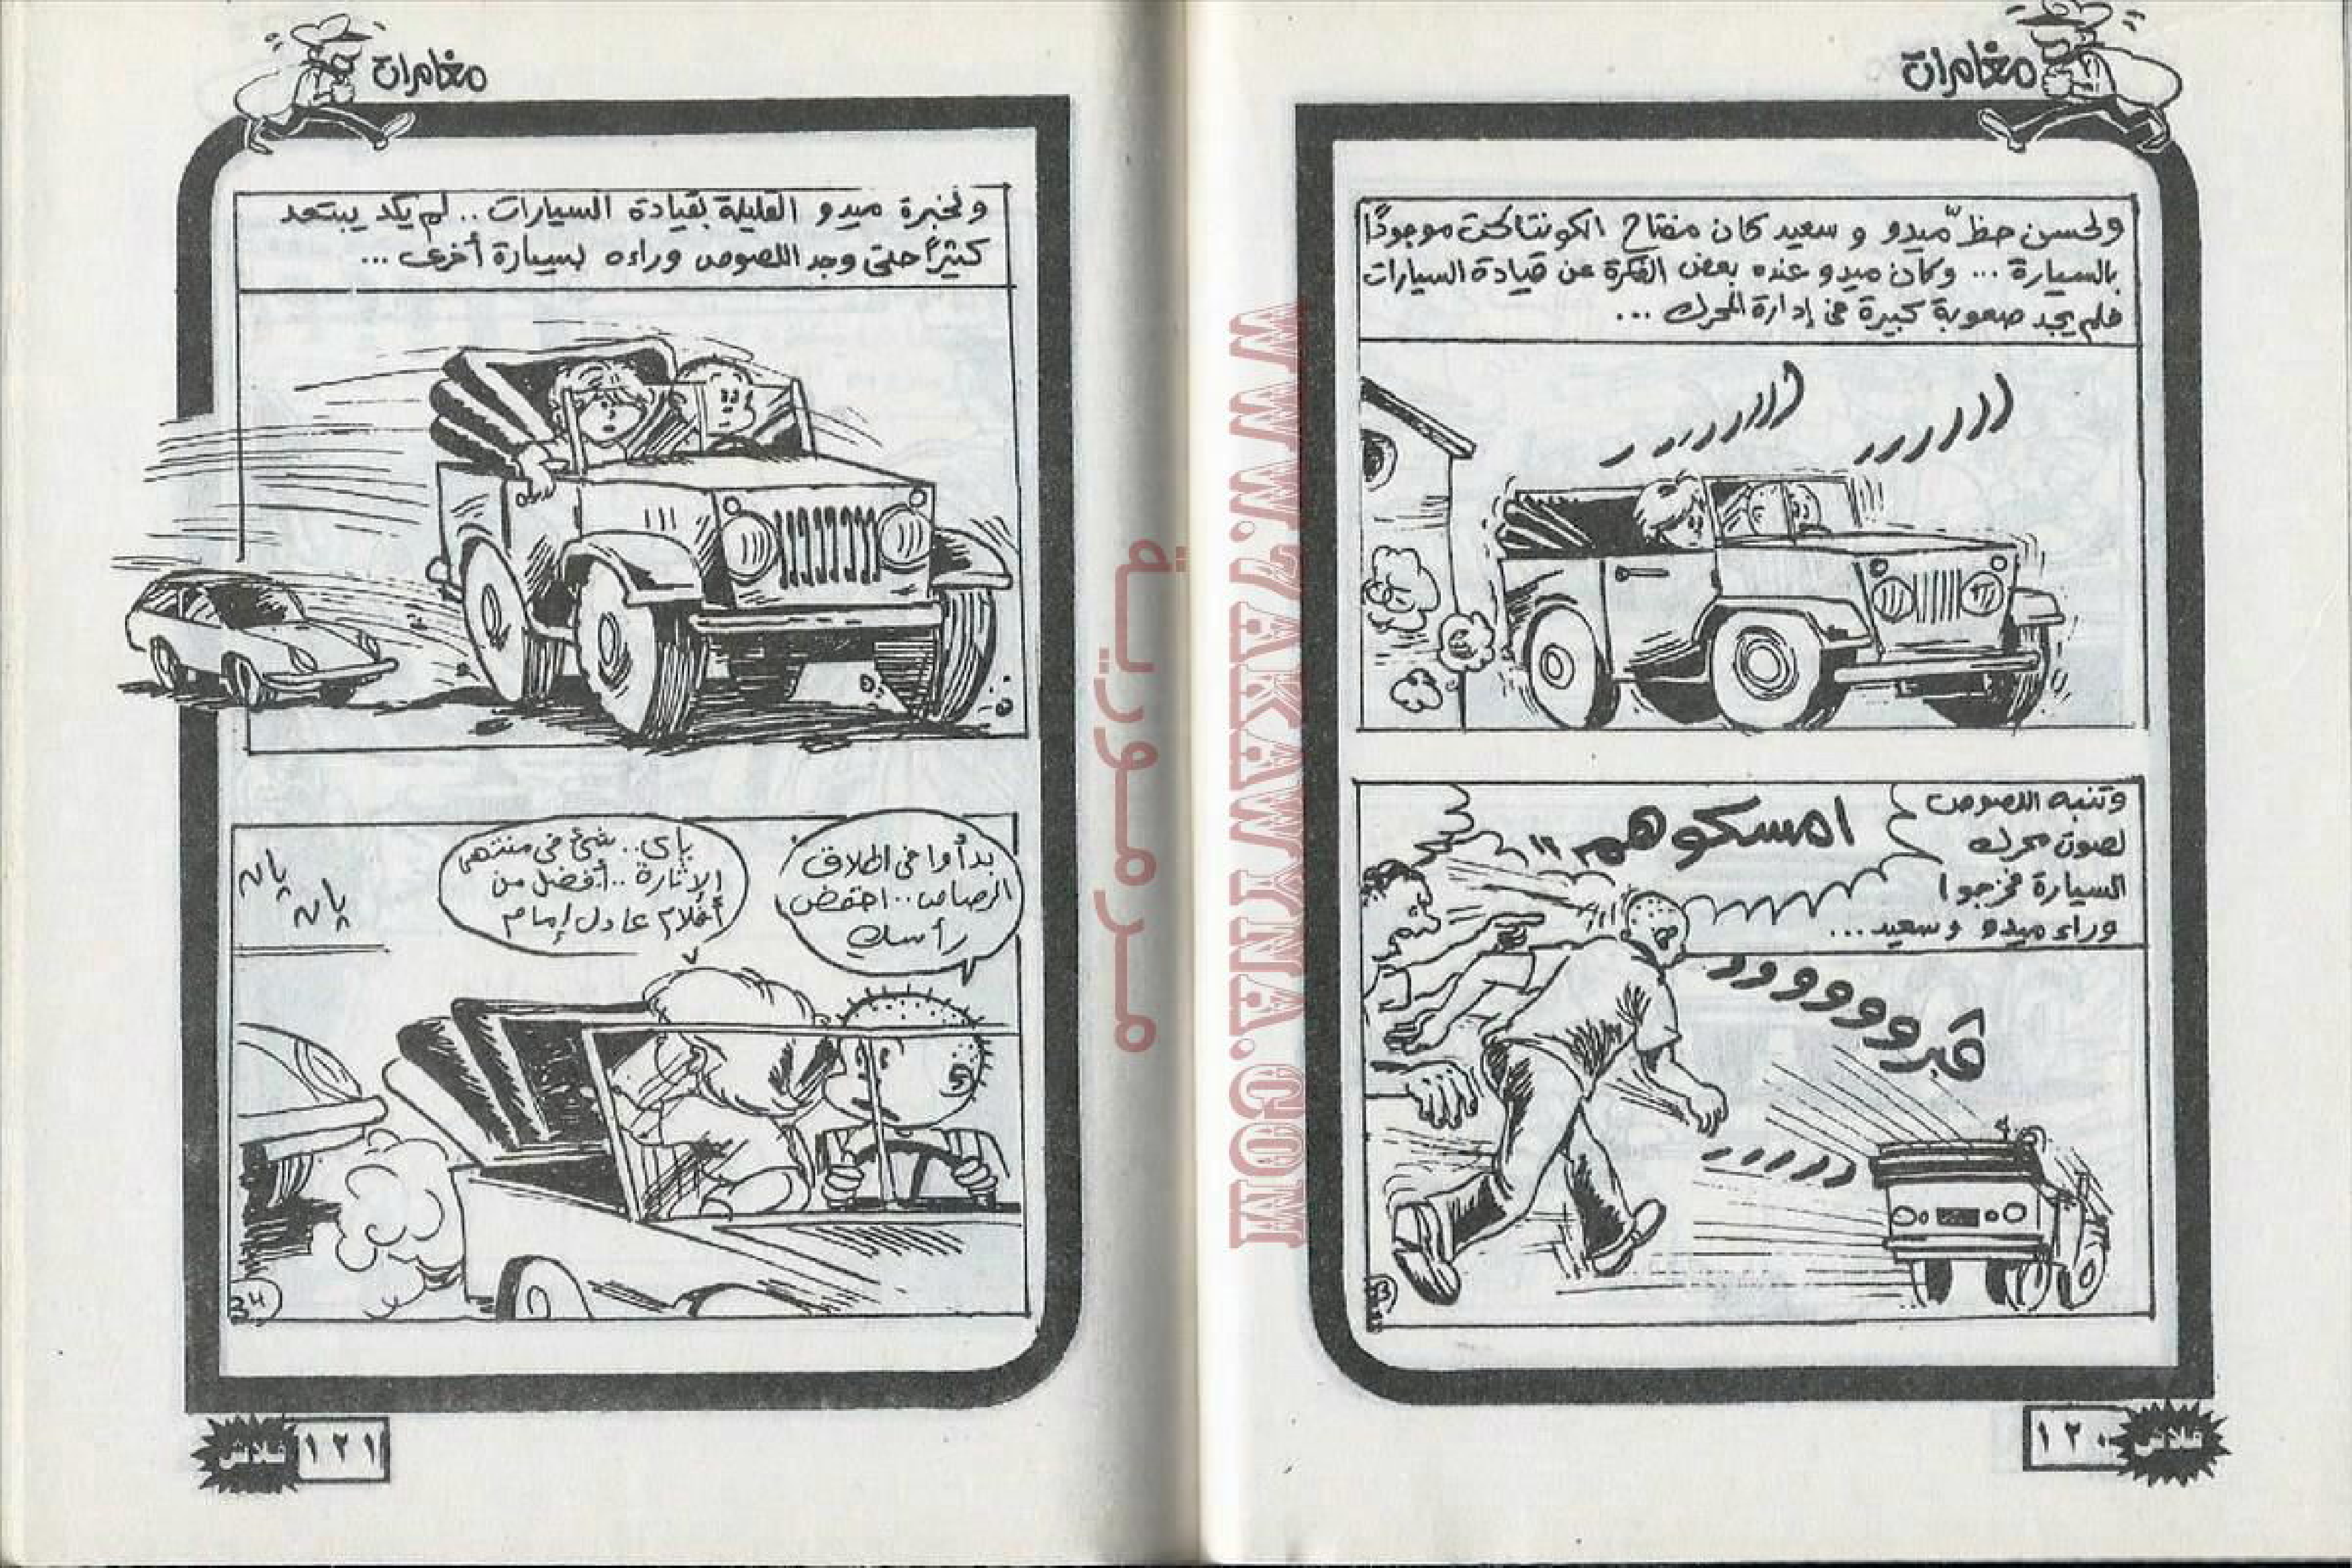 مغامرات
ولحسن حظّ ميدو و سعيد كان مفتاح الكونتاكت موجودًا
بالسيارة ... وكان ميدو عنده بعض الفكرة عن قيادة السيارات
فلم يجد صعوبة كبيرة فى إدارة المحرك ...
وتنبه اللصوص
لصوت محرك
السيارة فخرجوا
وراء ميدو وسعيد ...
امسكوهم !!
ڤبرووووود
فلاش
١٢٠
مغامرات
ولخبرة ميدو القليلة بقيادة السيارات .. لم يكد يبتعد
كثيرًا حتى وجد اللصوص وراءه بسيارة أخرى ...
بدأوا فى اطلاق
الرصاص .. اخفض
رأسك
ياى .. شئ فى منتهى
الإثارة .. أفضل من
أفلام عادل إمام
پان
پان
٣٤
١٢١
فلاش
مرمورية
WWW.7AKAWYNA.COM